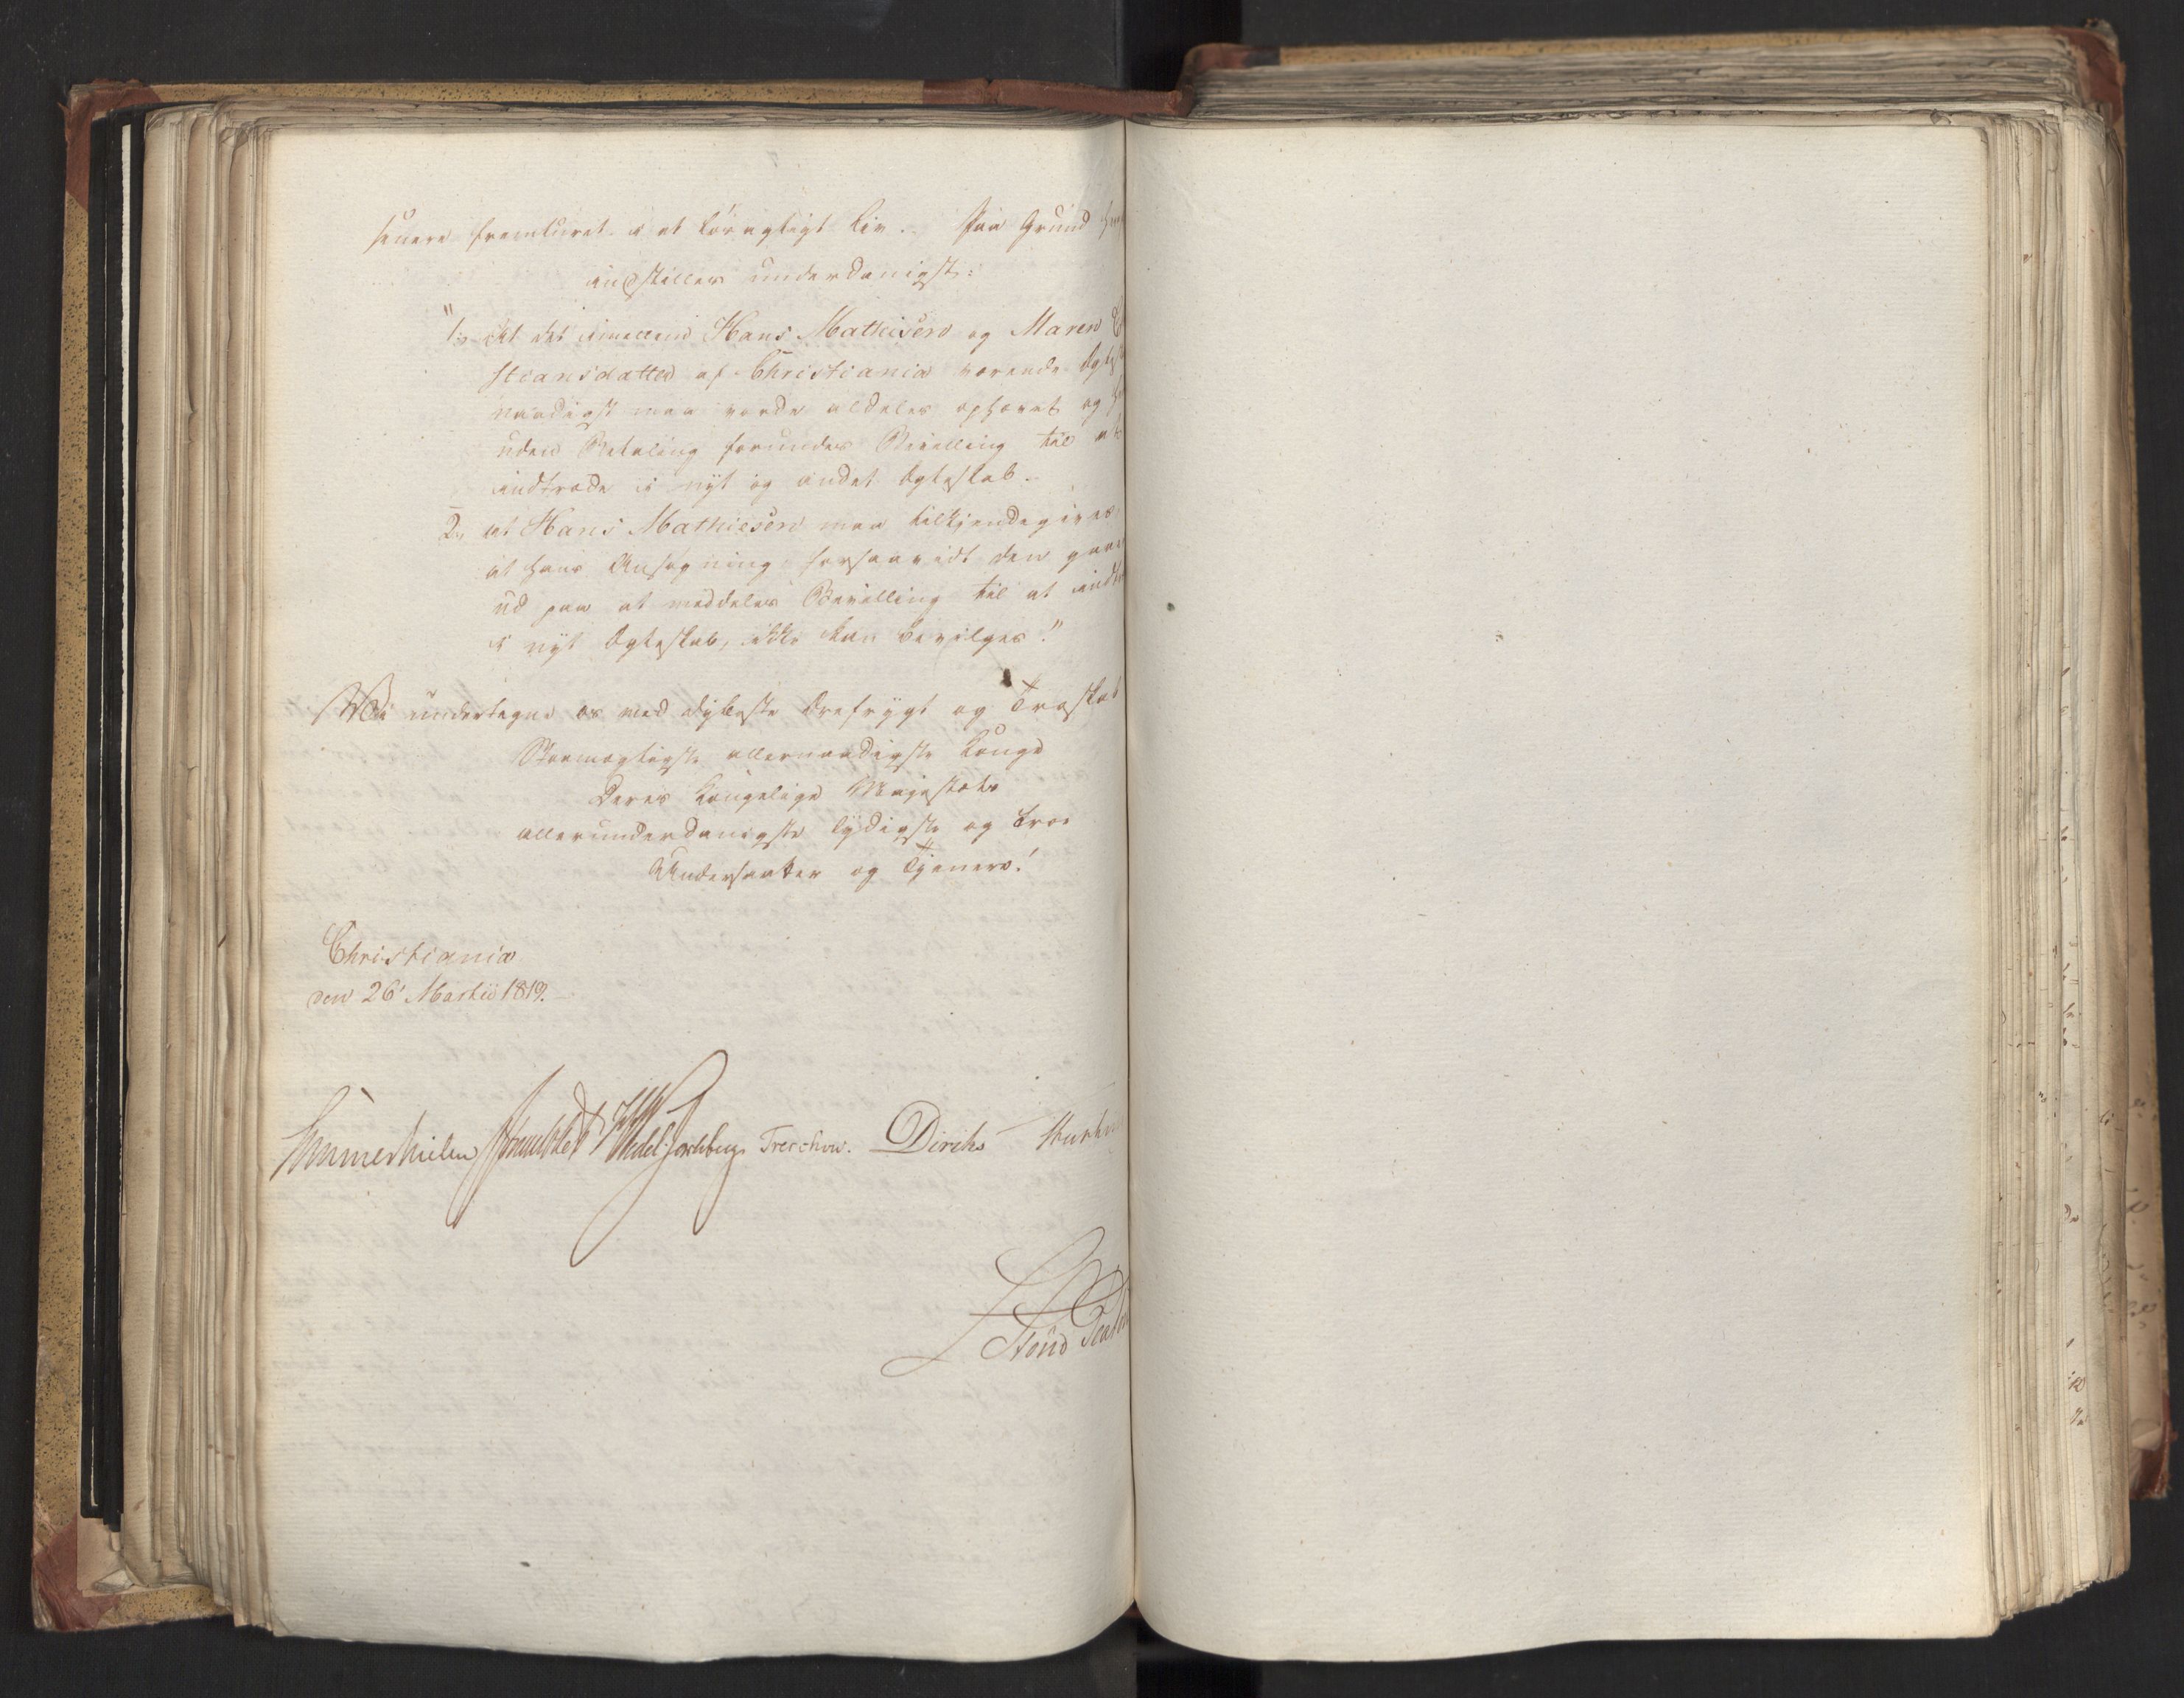 senere fremturet i et løsagtigt Liv. Paa Grund
indstilles underdanigst:
"1., At det imellem Hans Mathisen og Maren
stiansdatter af Christiania værende Egte
naadigst maa vorde aldeles ophævet og
uden Betaling forundes Bevilling til at
indtræde i nyt og andet Egteskab.
2., at Hans Mathiesen maa tilkjendegives,
at hans Ansøgning forsaavidt den gaaer
ud paa at meddeles Bevilling til at indtr
i nyt Egteskab, ikke kan bevilges."
Vi undertegne os med dybeste Ærefrygt og Troskab
Stormægtigste allernaadigste Konge
Deres Kongelige Majestæts
allerunderdanigste lydigste og troe
Undersaatter og Tjenere!
Christiania
den 26' Martii 1819.
Sommerhielm Wedel Jarlsberg Treschow. Diriks